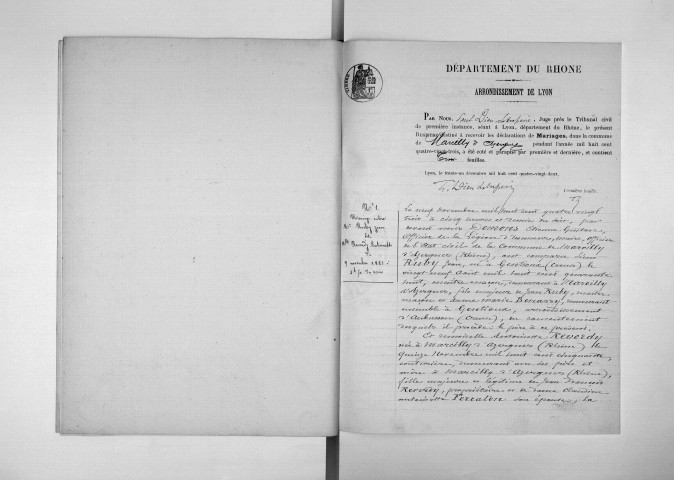 DÉPARTEMENT DU RHONE
ARRONDISSEMENT DE LYON
PAR NOUS, Juge près le Tribunal civil
de première instance, séant à Lyon, département du Rhône, le présent
Registre destiné à recevoir les déclarations de Mariages, dans la commune
de Marcilly d'Azergues pendant l'année mil huit cent
quatre-vingt-trois, a été coté et paraphé par première et dernière, et contient
feuilles.
Lyon, le trente-un décembre mil huit cent quatre-vingt-deux.
Première feuille.
N° 1
Mariage entre
Mr Ruby Jean
et
Mlle Reverdy Antoinette
9 novembre 1883
Le neuf novembre mil huit cent quatre vingt
trois à cinq heures et demie du soir, par
devant nous Demones Étienne Gustave,
officier de la Légion d'honneur, maire, officier
de l'État civil de la commune de Marcilly
d'Azergues (Rhône), ont comparu Sieur
Ruby Jean, né à Gentioux (Creuse) le
vingt neuf août mil huit cent quarante
huit, maître maçon, demeurant à Marcilly
d'Azergues, fils majeur de Jean Ruby, maître
maçon et dame Marie demeurant
ensemble à Gentioux, arrondissement
d'Aubusson (Creuse), du consentement
desquels il procède, le père à ce présent.
Et demoiselle Antoinette Reverdy
née à Marcilly d'Azergues (Rhône) le
quinze novembre mil huit cent cinquante,
couturière, demeurant avec ses père et
mère à Marcilly d'Azergues (Rhône),
fille majeure et légitime de Jean François
Reverdy, propriétaire et de dame Claudine
Antoinette Perralon son épouse, la